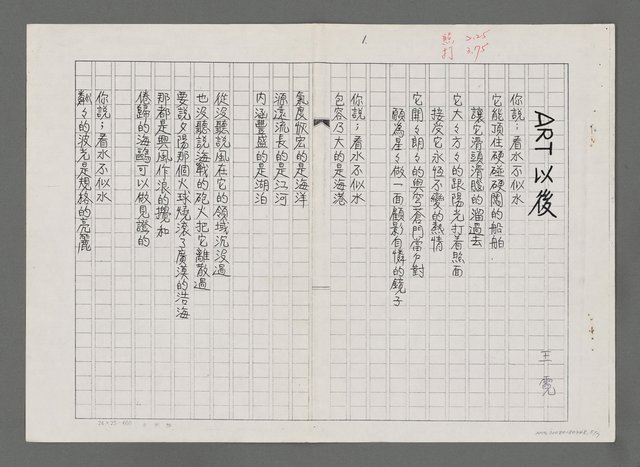 1.
照 2.25
打 3.75
ART以後
王霓
你說；看水不似水
它能頂住硬碰硬闖的船舶
讓它滑頭滑腦的溜過去
它大々方々的跟陽光打着照面
接受它永恆不變的熱情
它開々朗々的與空蒼門當戶對
願為星々做一面顧影自憐的鏡子
你說；看水不似水
包容乃大的是海港
氣度恢宏的是海洋
源遠流長的是江河
內涵豐盛的是湖泊
從沒聽說風在它的領域沉沒過
也沒聽說海戰的砲火把它離散過
要說夕陽那個火球燒滾了廣漠的浩海
那都是興風作浪的攪和
倦歸的海鷗可以做見證的
你說；看水不似水
粼々的波光是規格的亮麗
24×25=600